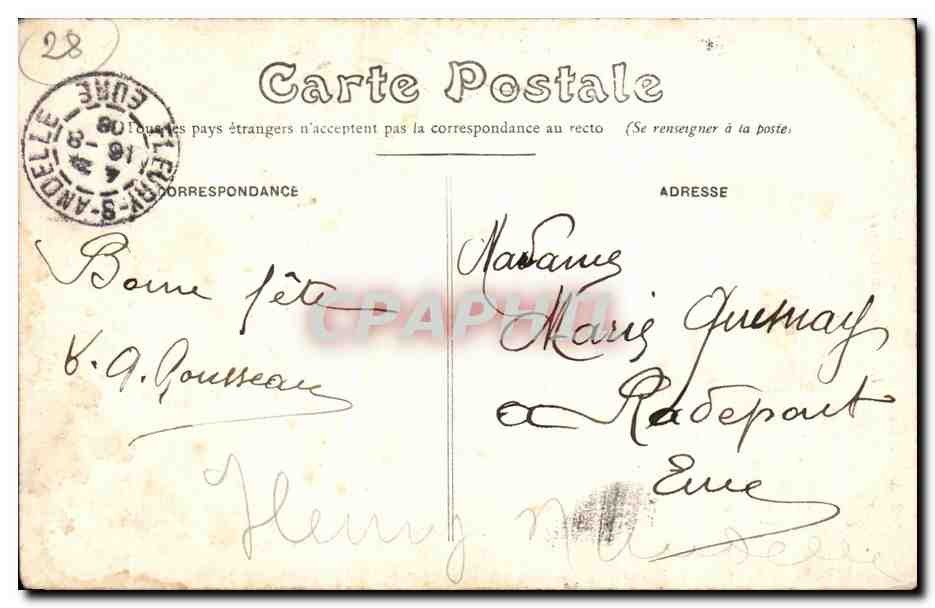 28
Carte Postale
Tous les pays étrangers n'acceptent pas la correspondance au recto (Se renseigner à la poste)
FLEURY-S-ANDELLE
EURE
16 -8
08
CORRESPONDANCE
ADRESSE
Bonne fête
K. A. Rousseau
Madame
Marie Quesnay
a Radepont
Eure
CPAPHIL
Fleury